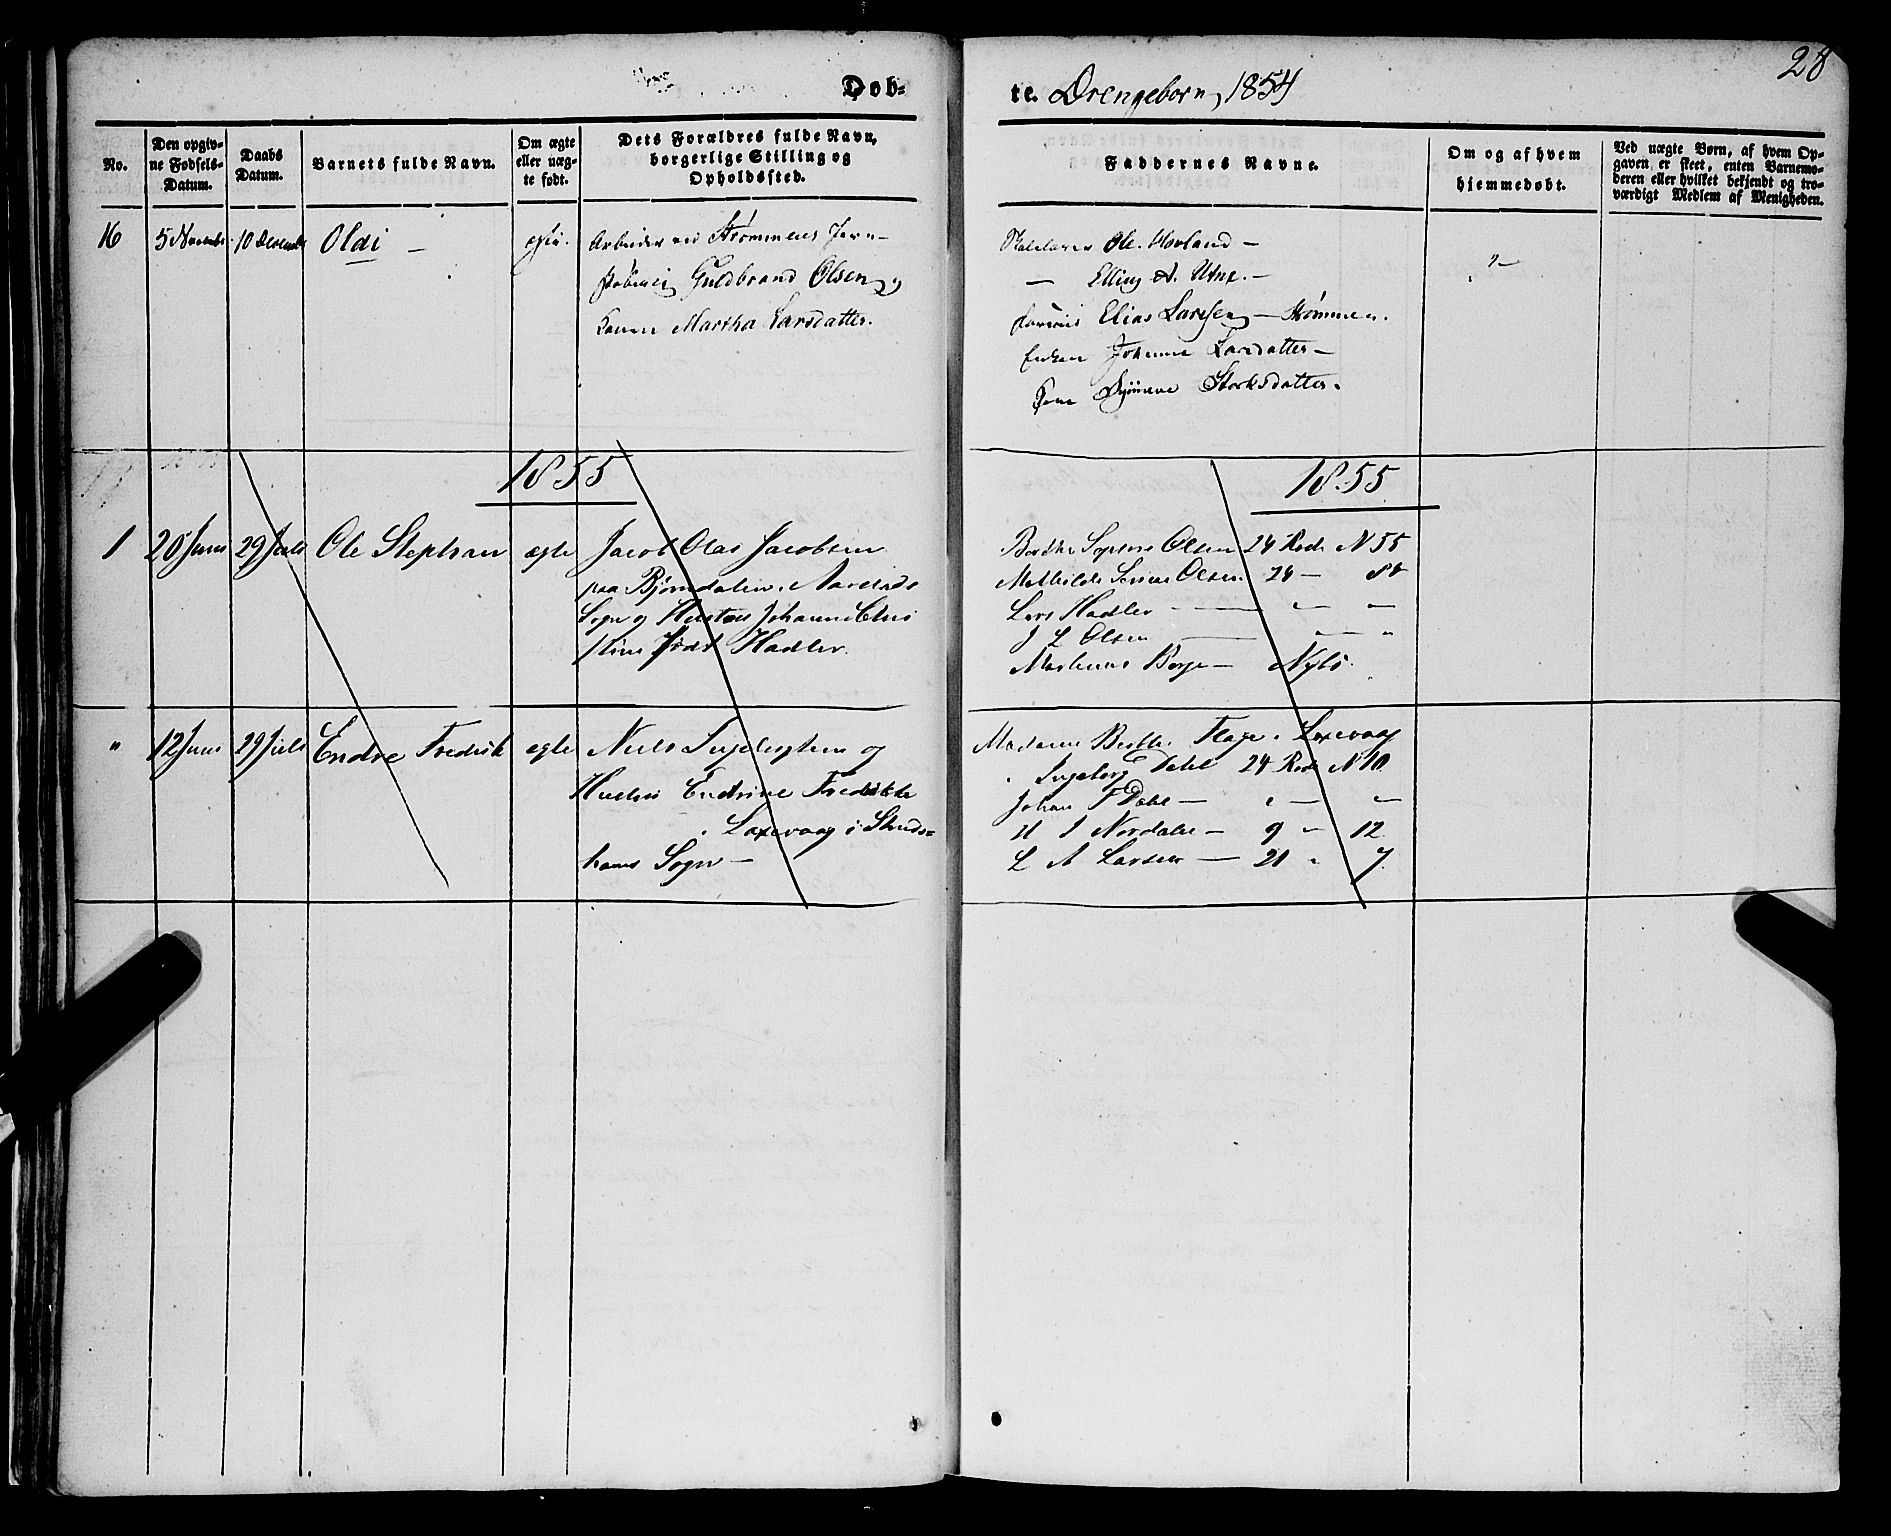 Døb-
te. Drengebørn, 1854
28
No.
Den opgiv-
ne Fødsels-
Datum.
Daabs
Datum.
Barnets fulde Navn.
Om ægte
eller uæg-
te født.
Dets Forældres fulde Navn,
borgerlige Stilling og
Opholdssted.
Faddernes Navne.
Om og af hvem
hjemmedøbt.
Ved uægte Børn, af hvem Op-
gaven er skeet, enten Barnemo-
deren eller hvilket bekjendt og tro-
værdigt Medlem af Menigheden.
16
5 November
10 December
Oldi –
Arbeider ved Strømmens Jern-
Guldbrand Olsen og
Konen Martha Larsdatter.
Ole Hovland –
– Elling A. Utne. –
Elias Larssen – Strømmen.
Enken Johanne Larsdatter –
Storksdatter.
1855
1855
1
20 Juni
29 Juli
Ole Stephan
ægte
Jacob Olai Jacobsen
paa Bjørndalen i Aarstads
Sogn og Hustru Johanne Chri
stine født Hadler.
Berthe Olsen 24 Rode N 55
Mathilde Olsen 24 –
Lars Hadler – " –
J L Olsen – " – "
Børge – Nybö.
"
12 Juni
29 Juli
Endre Fredrik
ægte
Niels Ingebrigtsen og
Hustru Endrine Fredrikke
i Laxevaag i Skuds-
havns Sogn –
Madame Berthe Flage i Laxevaag
" Ingeborg Dahl 24 Rode N 10
Johan F Dahl – " – –
H J Nordahl – 9 " 12
L A Larsen – 21 " 7.